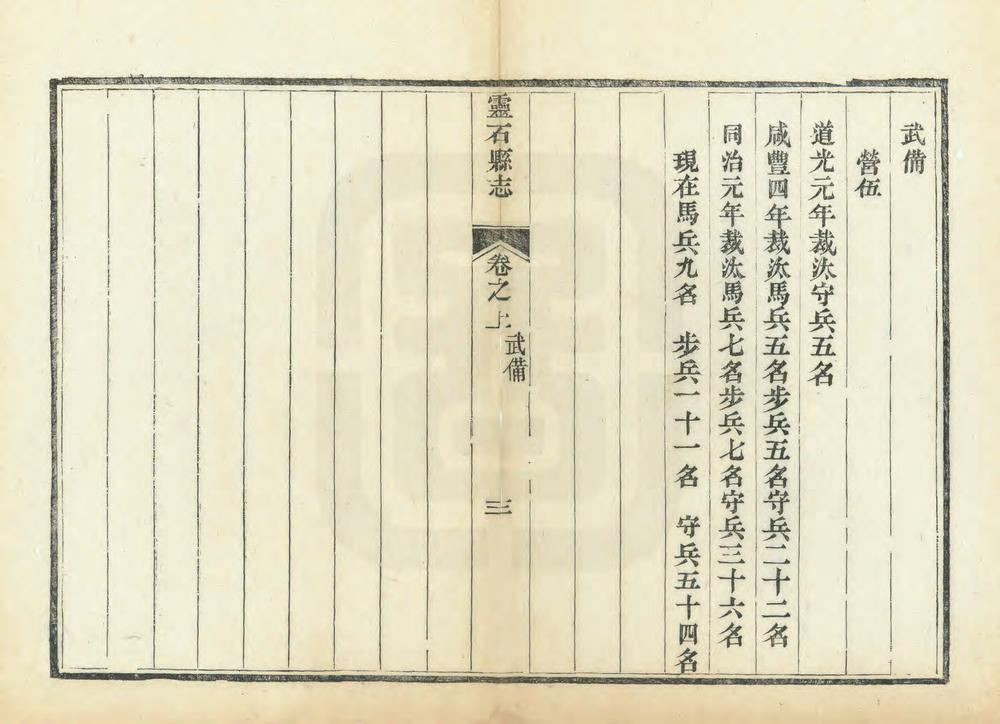 武備
營伍
道光元年裁汰守兵五名
咸豐四年裁汰馬兵五名步兵五名守兵二十二名
同治元年裁汰馬兵七名步兵七名守兵三十六名
現在馬兵九名　步兵一十一名　守兵五十四名
靈石縣志
卷之上
武備
三